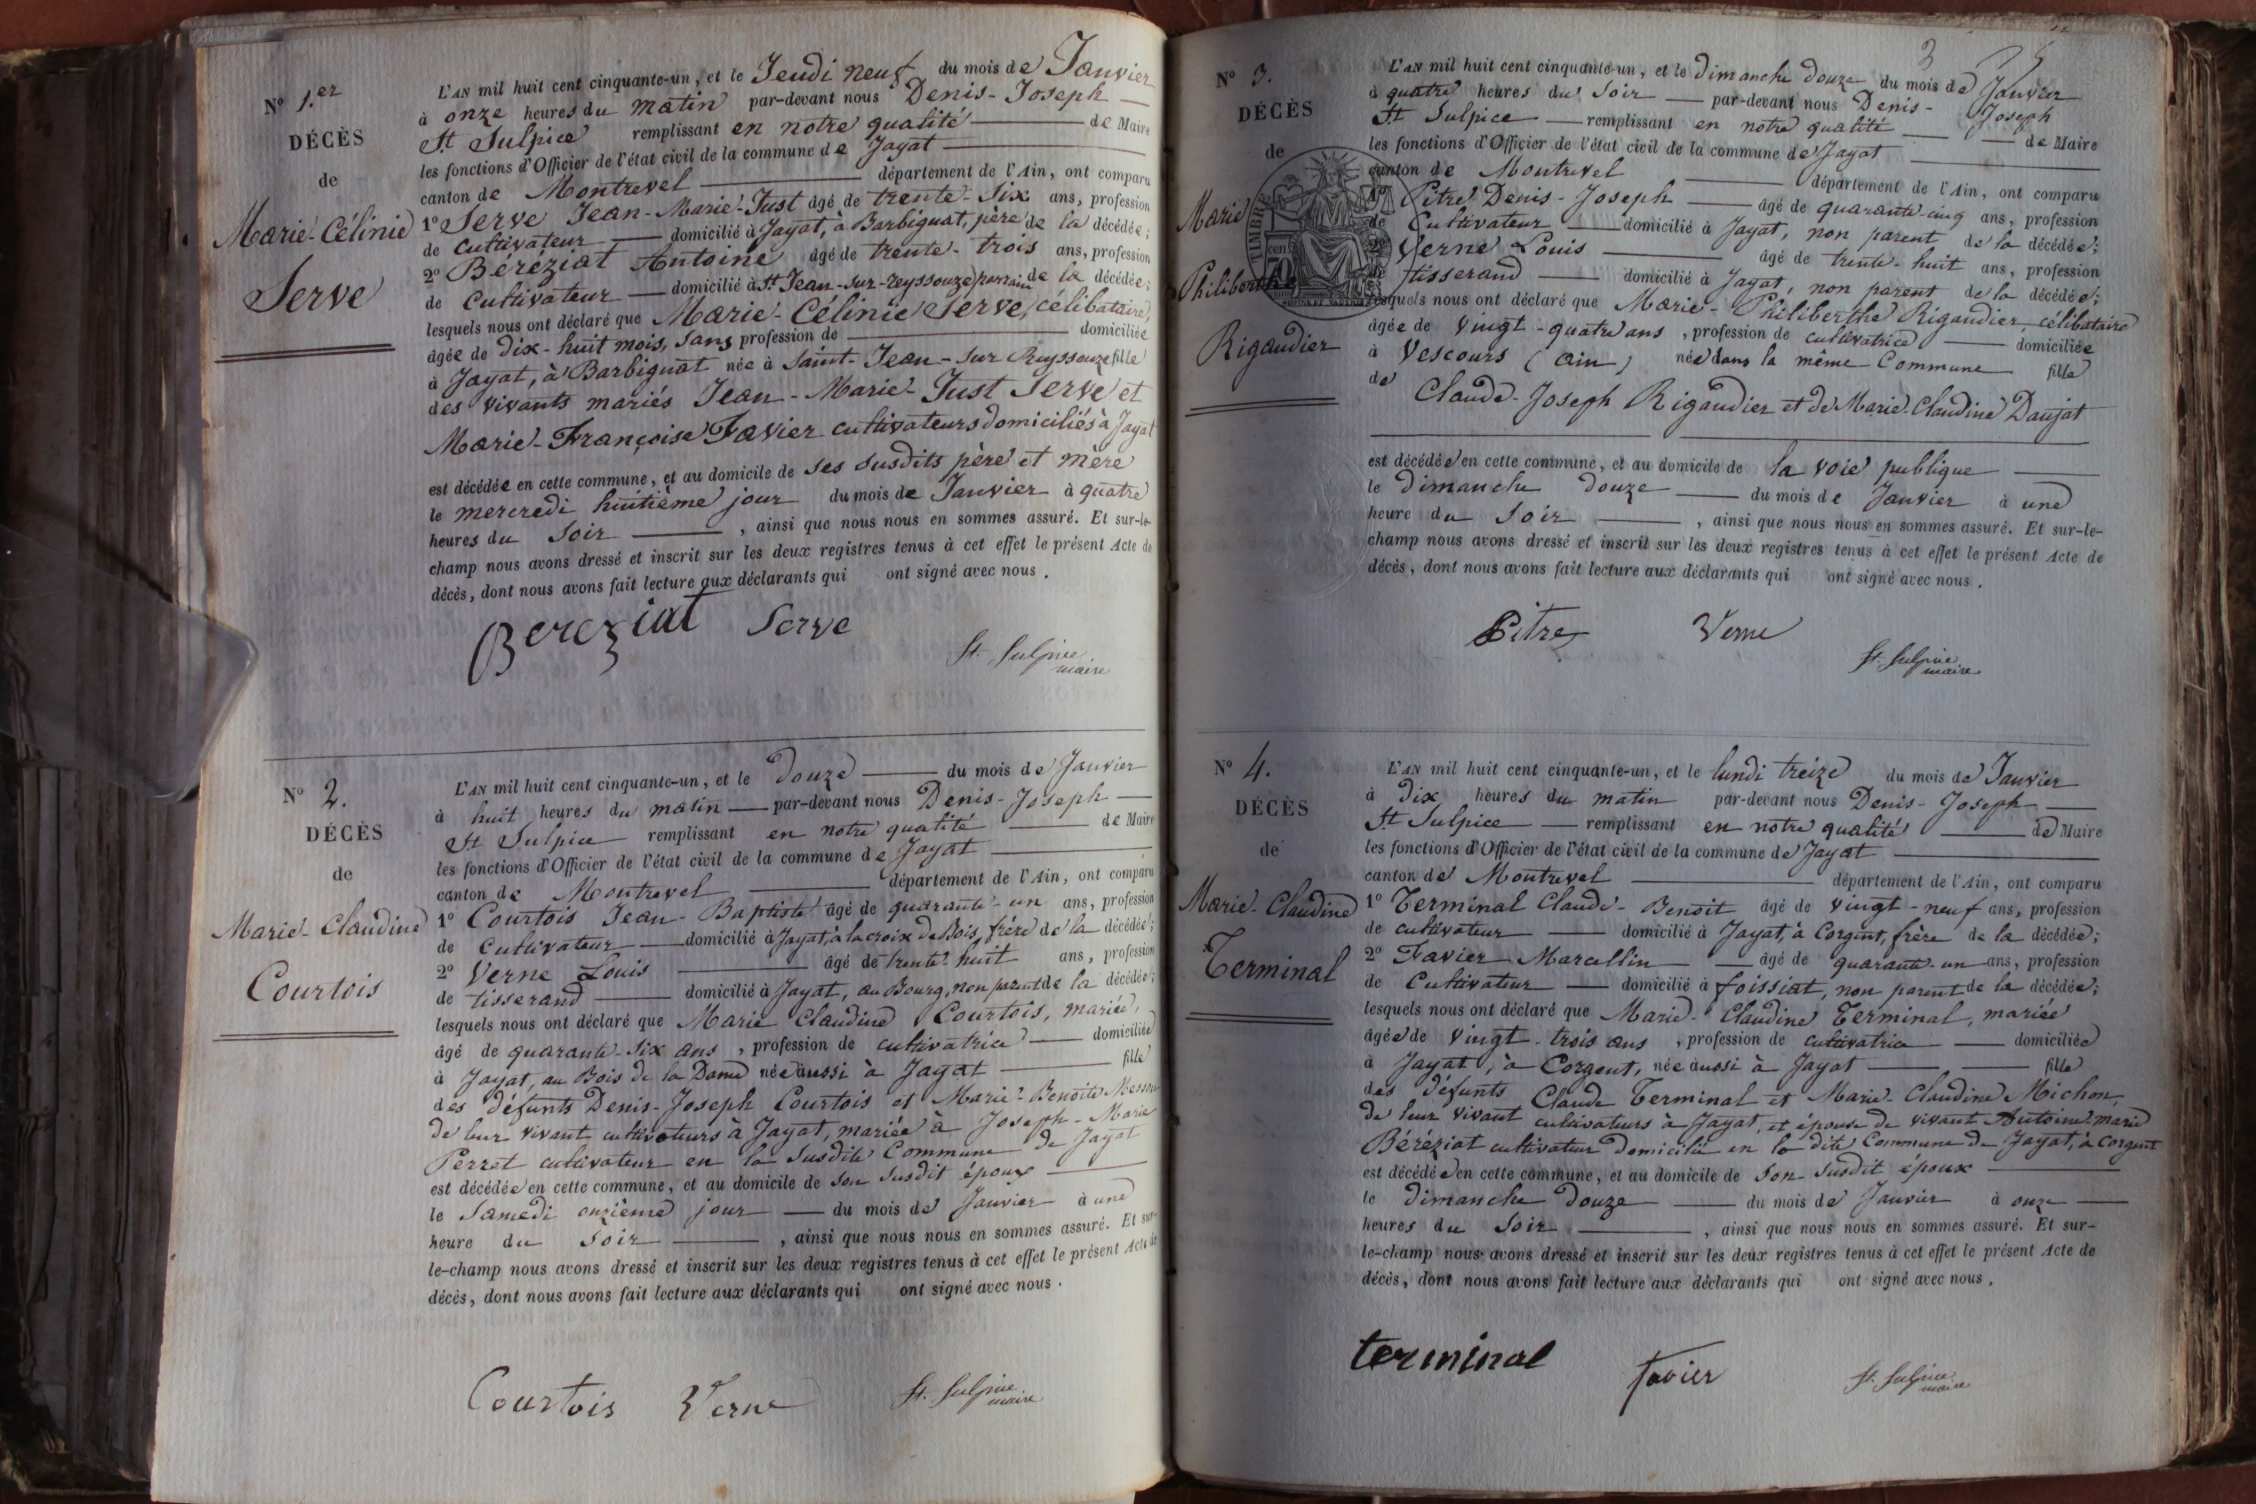 N° 1.er
DÉCÈS
de
Marie-Célinie
Serve
L'AN mil huit cent cinquante-un, et le Jeudi neuf du mois de Janvier
à onze heures du matin par-devant nous Denis-Joseph
St Sulpice remplissant en notre qualité de Maire
les fonctions d'Officier de l'état civil de la commune de Jayat
canton de Montrevel département de l'Ain, ont comparu
1° Serve Jean-Marie-Just âgé de trente-six ans, profession
de cultivateur domicilié à Jayat, à Barbignat, père de la décédée;
2° Béréziat Antoine âgé de trente-trois ans, profession
de cultivateur domicilié à St Jean-sur-reyssouze, parrain de la décédée;
lesquels nous ont déclaré que Marie-Célinie Serve, célibataire,
âgée de dix-huit mois, sans profession de domiciliée
à Jayat, à Barbignat née à Saint-Jean-sur Reyssouze fille
des vivants mariés Jean-Marie-Just Serve et
Marie-Françoise Favier cultivateurs domiciliés à Jayat
est décédée en cette commune, et au domicile de ses susdits père et mère
le mercredi huitième jour du mois de Janvier à quatre
heures du soir, ainsi que nous nous en sommes assuré. Et sur-le-
champ nous avons dressé et inscrit sur les deux registres tenus à cet effet le présent Acte de
décès, dont nous avons fait lecture aux déclarants qui ont signé avec nous.
Bereziat Serve St. Sulpice
maire
N° 2.
DÉCÈS
de
Marie-Claudine
Courtois
L'AN mil huit cent cinquante-un, et le douze du mois de Janvier
à huit heures du matin par-devant nous Denis-Joseph
St Sulpice remplissant en notre qualité de Maire
les fonctions d'Officier de l'état civil de la commune de Jayat
canton de Montrevel département de l'Ain, ont comparu
1° Courtois Jean-Baptiste âgé de quarante-un ans, profession
de cultivateur domicilié à Jayat, à la croix de Bois, frère de la décédée;
2° Verne Louis âgé de trente-huit ans, profession
de tisserand domicilié à Jayat, au Bourg, non parent de la décédée;
lesquels nous ont déclaré que Marie Claudine Courtois, mariée,
âgé de quarante-six ans, profession de cultivatrice domiciliée
à Jayat, au Bois de la Dame née aussi à Jayat fille
des défunts Denis-Joseph Courtois et Marie-Benoite
de leur vivant cultivateurs à Jayat, mariée à Joseph-Marie
Perret cultivateur en la susdite Commune de Jayat
est décédée en cette commune, et au domicile de son susdit époux
le samedi onzième jour du mois de Janvier à une
heure du soir, ainsi que nous nous en sommes assuré. Et sur-
le-champ nous avons dressé et inscrit sur les deux registres tenus à cet effet le présent Acte de
décès, dont nous avons fait lecture aux déclarants qui ont signé avec nous.
Courtois Verne St. Sulpice
maire
3
N° 3.
DÉCÈS
de
Marie
Philiberthe
Rigaudier
TIMBRE
L'AN mil huit cent cinquante-un, et le dimanche douze du mois de Janvier
à quatre heures du soir par-devant nous Denis-Joseph
St Sulpice remplissant en notre qualité de Maire
les fonctions d'Officier de l'état civil de la commune de Jayat
canton de Montrevel département de l'Ain, ont comparu
1° Pitre Denis-Joseph âgé de quarante-cinq ans, profession
de Cultivateur domicilié à Jayat, non parent de la décédée;
2° Verne Louis âgé de trente-huit ans, profession
de tisserand domicilié à Jayat, non parent de la décédée;
lesquels nous ont déclaré que Marie-Philiberthe Rigaudier, célibataire
âgée de vingt-quatre ans, profession de cultivatrice domiciliée
à Vescours (ain) née dans la même Commune fille
de Claude-Joseph Rigaudier et de Marie-Claudine Daujat
est décédée en cette commune, et au domicile de la voie publique
le dimanche douze du mois de Janvier à une
heure du soir, ainsi que nous nous en sommes assuré. Et sur-le-
champ nous avons dressé et inscrit sur les deux registres tenus à cet effet le présent Acte de
décès, dont nous avons fait lecture aux déclarants qui ont signé avec nous.
Pitre Verne St. Sulpice
maire
N° 4.
DÉCÈS
de
Marie-Claudine
Terminal
L'AN mil huit cent cinquante-un, et le lundi treize du mois de Janvier
à dix heures du matin par-devant nous Denis-Joseph
St Sulpice remplissant en notre qualité de Maire
les fonctions d'Officier de l'état civil de la commune de Jayat
canton de Montrevel département de l'Ain, ont comparu
1° Terminal Claude-Benoit âgé de vingt-neuf ans, profession
de cultivateur domicilié à Jayat, à Corgent, frère de la décédée;
2° Favier Marcellin âgé de quarante-un ans, profession
de Cultivateur domicilié à foissiat, non parent de la décédée;
lesquels nous ont déclaré que Marie-Claudine Terminal, mariée
âgée de vingt-trois ans, profession de cultivatrice domiciliée
à Jayat, à Corgent, née aussi à Jayat fille
des défunts Claude Terminal et Marie-Claudine Michon,
de leur vivant cultivateurs à Jayat, et épouse de vivant Antoine-marie
Béréziat cultivateur domicilié en la dite Commune de Jayat, à Corgent
est décédée en cette commune, et au domicile de son susdit époux
le dimanche douze du mois de Janvier à onze
heures du soir, ainsi que nous nous en sommes assuré. Et sur-
le-champ nous avons dressé et inscrit sur les deux registres tenus à cet effet le présent Acte de
décès, dont nous avons fait lecture aux déclarants qui ont signé avec nous.
terminal favier St. Sulpice
maire